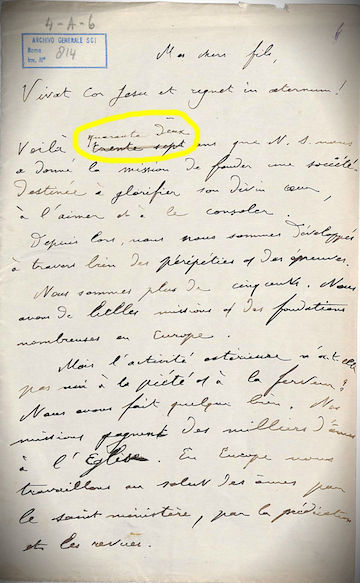 4-A-6
ARCHIVIO GENERALE SCJ
Roma
Inv. N° 814
6
Mes chers fils,
Vivat Cor Jesu et regnet in æternum!
quarante deux
Voilà trente sept ans que N. S. nous
a donné la mission de fonder une société
destinée à glorifier son divin cœur,
à l'aimer et à le consoler.
Depuis lors, nous nous sommes développés
à travers bien des péripéties et des épreuves.
Nous sommes plus de cinq cents. Nous
avons de belles missions et des fondations
nombreuses en Europe.
Mais l'activité extérieure n'a-t-elle
pas nui à la piété et à la ferveur?
Nous avons fait quelque bien. Nos
missions gagnent des milliers d'âmes
à l'Eglise. En Europe nous
travaillons au salut des âmes par
le saint ministère, par la prédication
et les revues.